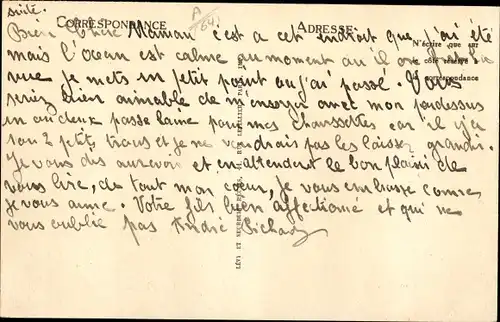 suite.
CORRESPONDANCE
ADRESSE
A
841
Bien chère Maman c'est a cet endroit que j'ai été
N'écrire que sur
mais l'océan est calme au moment ou il ont
côté réservé
vue je mets un petit point ou j'ai passé. Vous
correspondance
seriez bien aimable de m'envoyer avec mon pardessus
un ou deux passe laine pour mes chaussettes car il y a
2 petits trous et je ne voudrais pas les laisser grandir.
Je vous dis aurevoir et en attendant le bon plaisir de
vous lire, de tout mon cœur, je vous embrasse comme
je vous aime. Votre fils bien affectionné et qui ne
vous oublie pas André
LÉVI ET NEURDEIN RÉUNIS